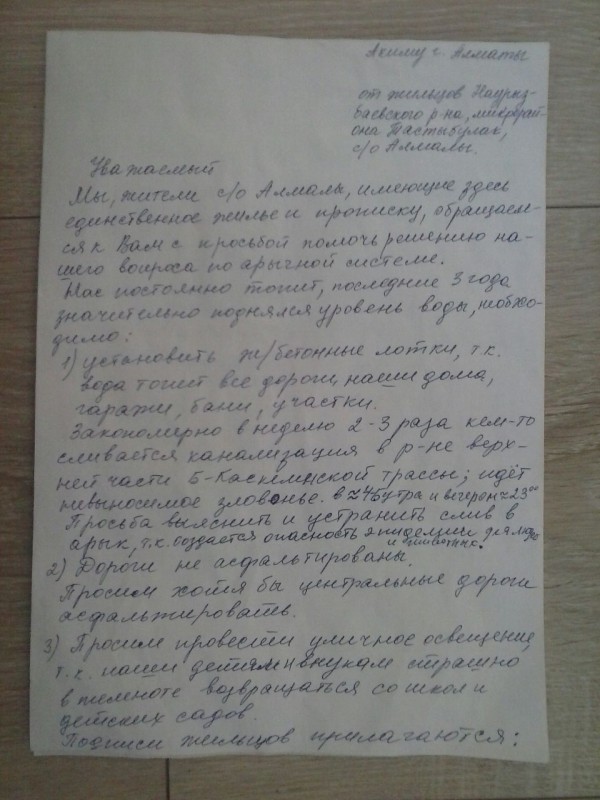 Акиму г. Алматы
от жильцов Наурыз-
баевского р-на, микрорай-
она Тастыбулак,
с/о Алмалы.
Уважаемый
Мы, жители с/о Алмалы, имеющие здесь
единственное жилье и прописку, обращаем-
ся к Вам с просьбой помочь решению на-
шего вопроса по арычной системе.
Нас постоянно топит, последние 3 года
значительно поднялся уровень воды, необхо-
димо:
1) установить ж/бетонные лотки, т.к.
вода топит все дороги, наши дома,
гаражи, бани, участки.
Закономерно в неделю 2-3 раза кем-то
сливается канализация в р-не верх-
ней части Б-Каскеленской трассы; идёт
невыносимое зловонье. в 7 45 утра и вечером 23 00
Просьба выяснить и устранить слив в
арык, т.к. создается опасность эпидемии для людей
и животных.
2) Дороги не асфальтированы.
Просим хотя бы центральные дороги
асфальжировать.
3) Просим провести уличное освещение,
т.к. нашим детям и внукам страшно
в темноте возвращаться со школ и
детских садов.
Подписи жильцов прилагаются: